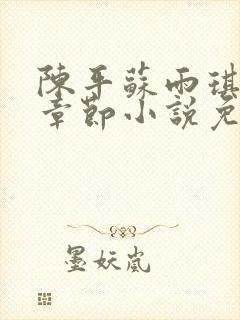 陳平蘇雨琪
章節小說免
墨妖嵐